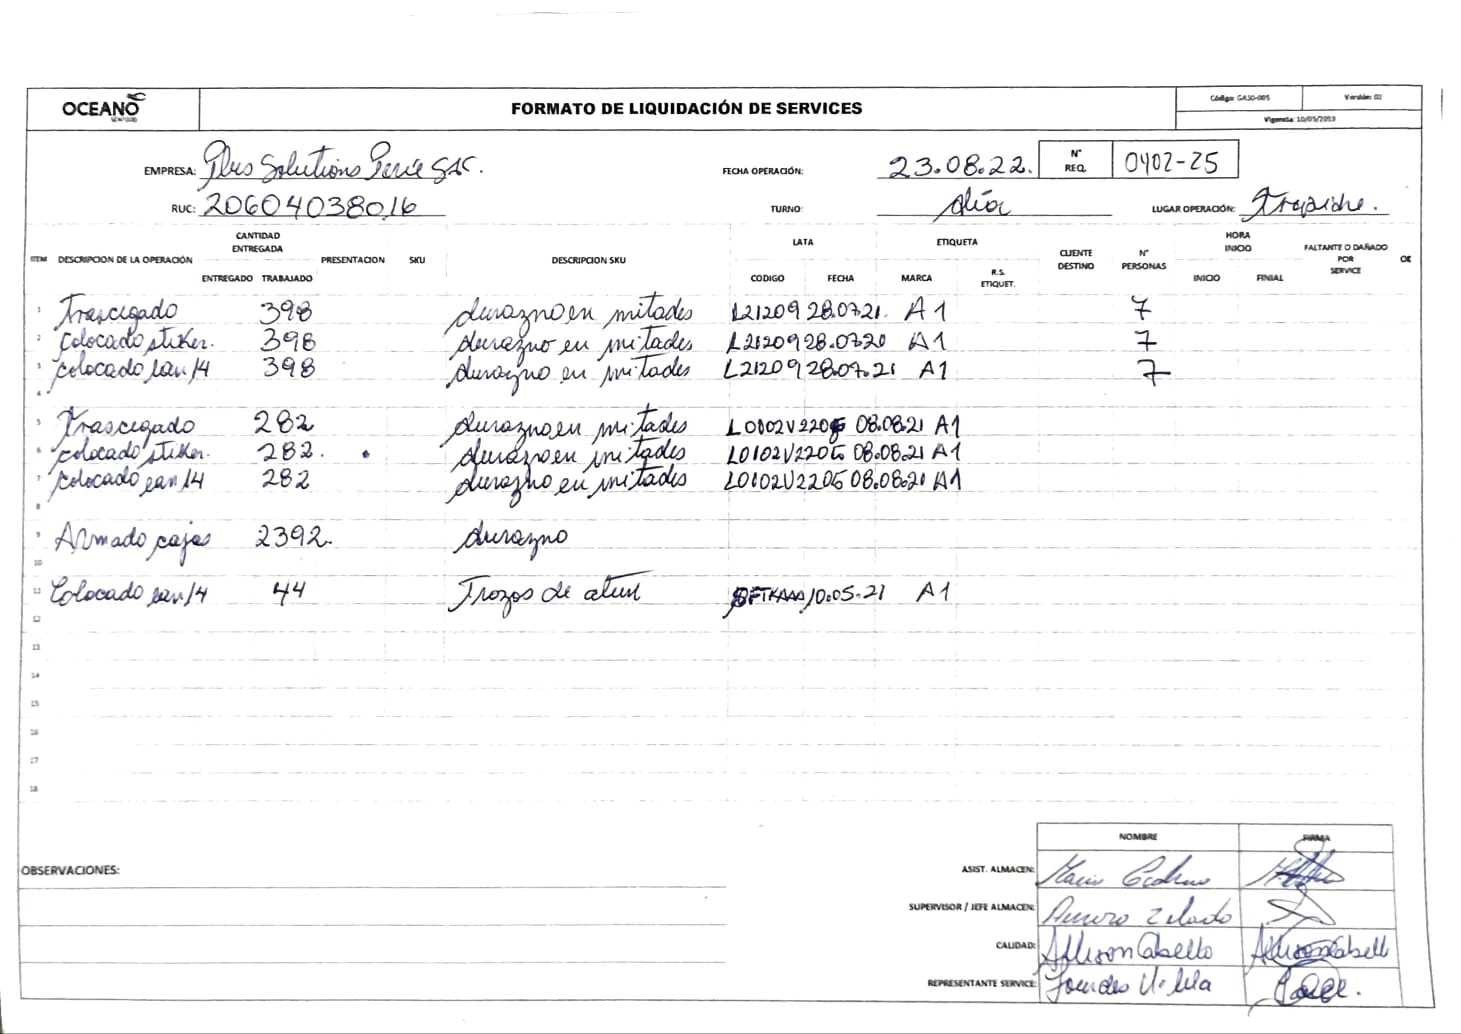 OCEANO
SEAFOOD
FORMATO DE LIQUIDACIÓN DE SERVICES
Código: GASO-005
Versión: 02
Vigencia: 10/05/2019
EMPRESA: Plus Solutions Perú SAC.
FECHA OPERACIÓN: 23.08.22.
N° REQ. 0402-25
RUC: 20604038016
TURNO: día
LUGAR OPERACIÓN: Trapiche.
ITEM DESCRIPCION DE LA OPERACIÓN CANTIDAD ENTREGADA ENTREGADO TRABAJADO PRESENTACION SKU DESCRIPCION SKU LATA CODIGO FECHA ETIQUETA MARCA R.S. ETIQUET. CLIENTE DESTINO N° PERSONAS HORA INICIO INICIO FINIAL FALTANTE O DAÑADO POR SERVICE OK
1 Trascegado 398 durazno en mitades L21209 28.07.21. A1 7
2 Colocado stiker. 398 durazno en mitades L21209 28.07.20 A1 7
3 colocado ean/4 398 durazno en mitades L21209 28.07.21 A1 7
4
5 Trascegado 282 durazno en mitades L0102V2205 08.08.21 A1
6 colocado stiker. 282. durazno en mitades L0102V2205 08.08.21 A1
7 colocado ean/4 282 durazno en mitades L0102V2205 08.08.21 A1
8
9 Armado cajas 2392. durazno
10
11 Colocado ean/4 44 Trozos de atun 10.05.21 A1
12
13
14
15
16
17
18
NOMBRE FIRMA
OBSERVACIONES:
ASIST. ALMACEN:
SUPERVISOR / JEFE ALMACEN:
CALIDAD: Allison Cabello Allison Cabello
REPRESENTANTE SERVICE: Lourdes